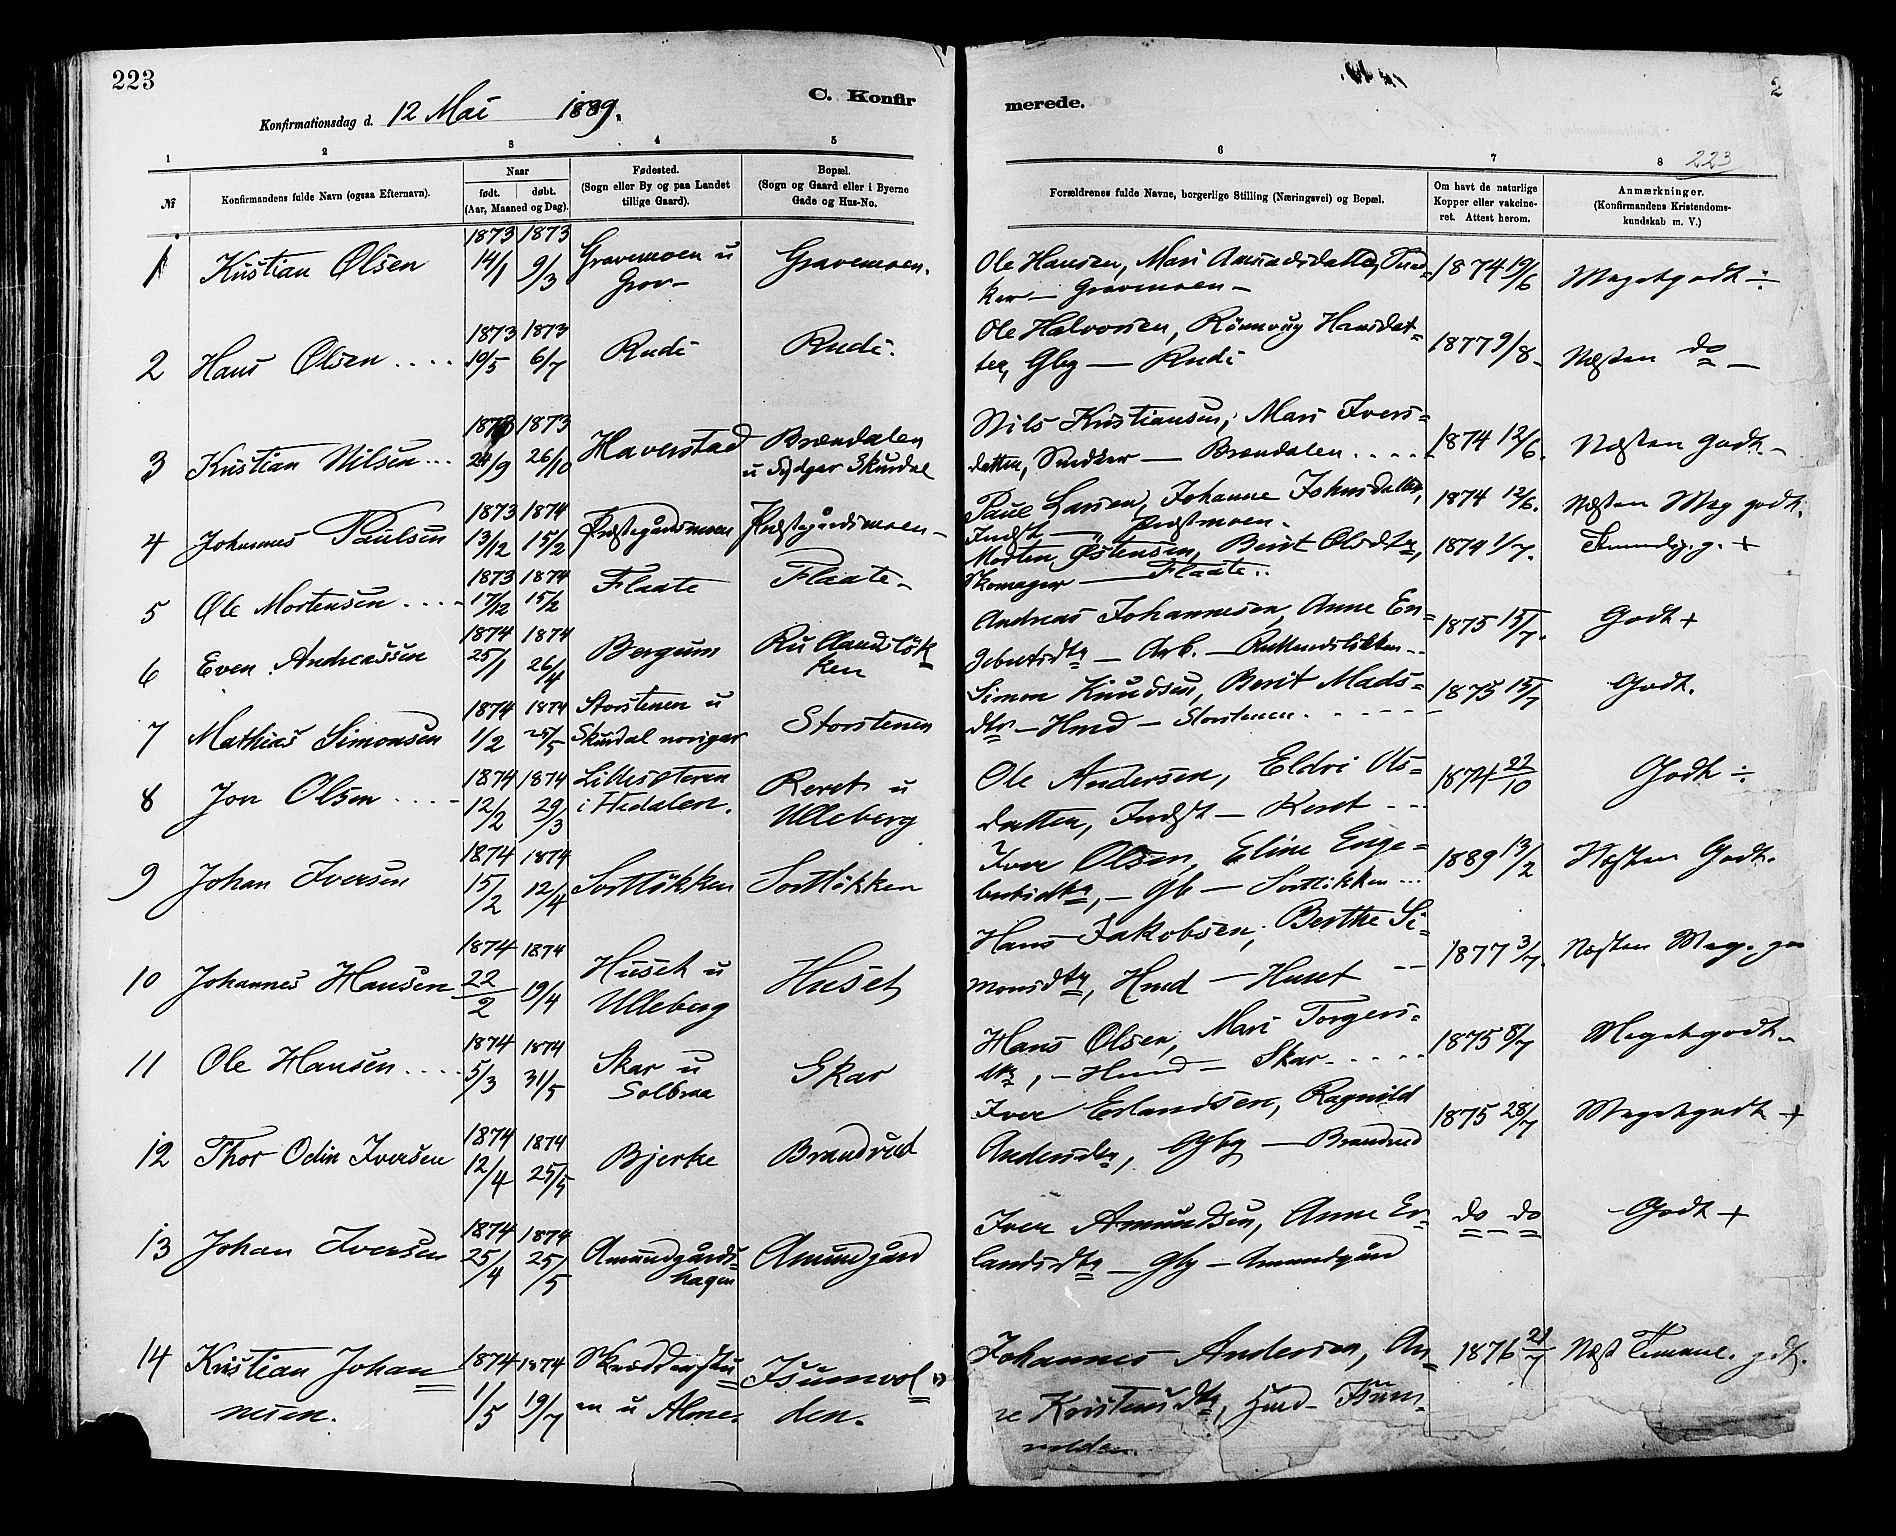 223
C. Konfir
merede.
2
Konfirmationsdag d. 12 Mai 1889.
1 2 3 4 5 6 7 8 223
№
Konfirmandens fulde Navn (ogsaa Efternavn).
Naar
født. døbt.
(Aar, Maaned og Dag).
Fødested.
(Sogn eller By og paa Landet
tillige Gaard).
Bopæl.
(Sogn og Gaard eller i Byerne
Gade og Hus-No.
Forældrenes fulde Navne, borgerlige Stilling (Næringsvei) og Bopæl.
Om havt de naturlige
Kopper eller vakcine-
ret. Attest herom.
Anmærkninger.
(Konfirmandens Kristendoms-
kundskab m. V.)
1 Kristian Olsen 1873 14/1 1873 9/3 Gravemoen u Grov- Gravemoen.
Ole Hansen, Mari Amundsdatter, Sned-
ker — Gravemoen — 1874 19/6 Megetgodt ÷
2 Hans Olsen .... 1873 19/5 1873 6/7 Rudi Rudi.
Ole Halvorsen, Rönnoug Hansdat-
ter, Gbg — Rudi 1877 9/8- Næsten do —
3 Kristian Nilsen ... 1873 24/9 1873 26/10 Haverstad Brændalen u Sydger Skurdal
Nils Kristiansen, Mari Ivers-
datter, Snedker — Brændalen .... 1874 12/6. Næsten godt. -
4 Johannes Paulsen 1873 13/12 1874 15/2 Præstegårdsmoen Præstegårdsmoen -
Paul Larsen, Johanne Johnsdatter,
Indst — Præstmoen. 1874 12/6. Næsten Meg godt.
5 Ole Mortensen .... 1873 17/12 1874 15/2 Flaate Flaate -
Morten Östensen, Berit Olsdtr,
Skomager — Flaate.. 1874 1/7. g. +
6 Even Andreassen 1874 25/1 1874 26/4 Bergum Rullandslök= ken
Andreas Johannesen, Anne En-
gebretsdtr — Arb. — Rullandslökken.. 1875 15/7. Godt +
7 Mathias Simonsen 1874 1/2 1874 25/5 Storstenen u Skurdal noriger Storstenen
Simon Knudsen, Berit Mads-
dtr — Hmd — Storstenen. - - - - 1875 15/7 Godt.
8 Jon Olsen .... 1874 12/2 1874 29/3 Lillesæteren i Hedalen. Reret u Ulleberg
Ole Andersen, Eldri Ols-
datter, Indst — Reret - - - 1874 22/10 Godt ÷
9 Johan Iversen 1874 15/2 1874 12/4 Sortlökken Sortlökken
Iver Olsen, Eline Enge-
bretsdtr, — Gb — Sortlökken ... 1889 13/2 Næsten Godt.
10 Johannes Hansen 1874 22/2 1874 19/4 Huset u Ulleberg Huset
Hans Jakobsen, Berthe Si-
monsdtr, Hmd — Huset - - 1877 3/7. Næsten Meg. go
11 Ole Hansen .... 1874 5/3 1874 31/5 Skar u Solbraa Skar
Hans Olsen, Mari Torgers-
dtr, — Hmd — Skar - - - - 1875 8/7 Megetgodt -
12 Thor Odin Iversen 1874 12/4 1874 25/5 Bjerke Brandvol
Iver Erlandsen, Ragnild
Andersdtr, Gbg — 1875 28/7 Megetgodt +
13 Johan Iversen 1874 25/4 1874 25/5 Amundgårds= hagen Amundgård
Iver Amundsen, Anne Er-
landsdtr — Gbg — Amundgård do do Godt +
14 Kristian Johan= nesen. 1874 1/5 1874 19/7 Skrædderstu= en u Isumvol= den.
Johannes Andersen, An-
ne Kristensdtr, Hmd - Isum-
volden. 1876 21/7 Næst Temme. gdt.